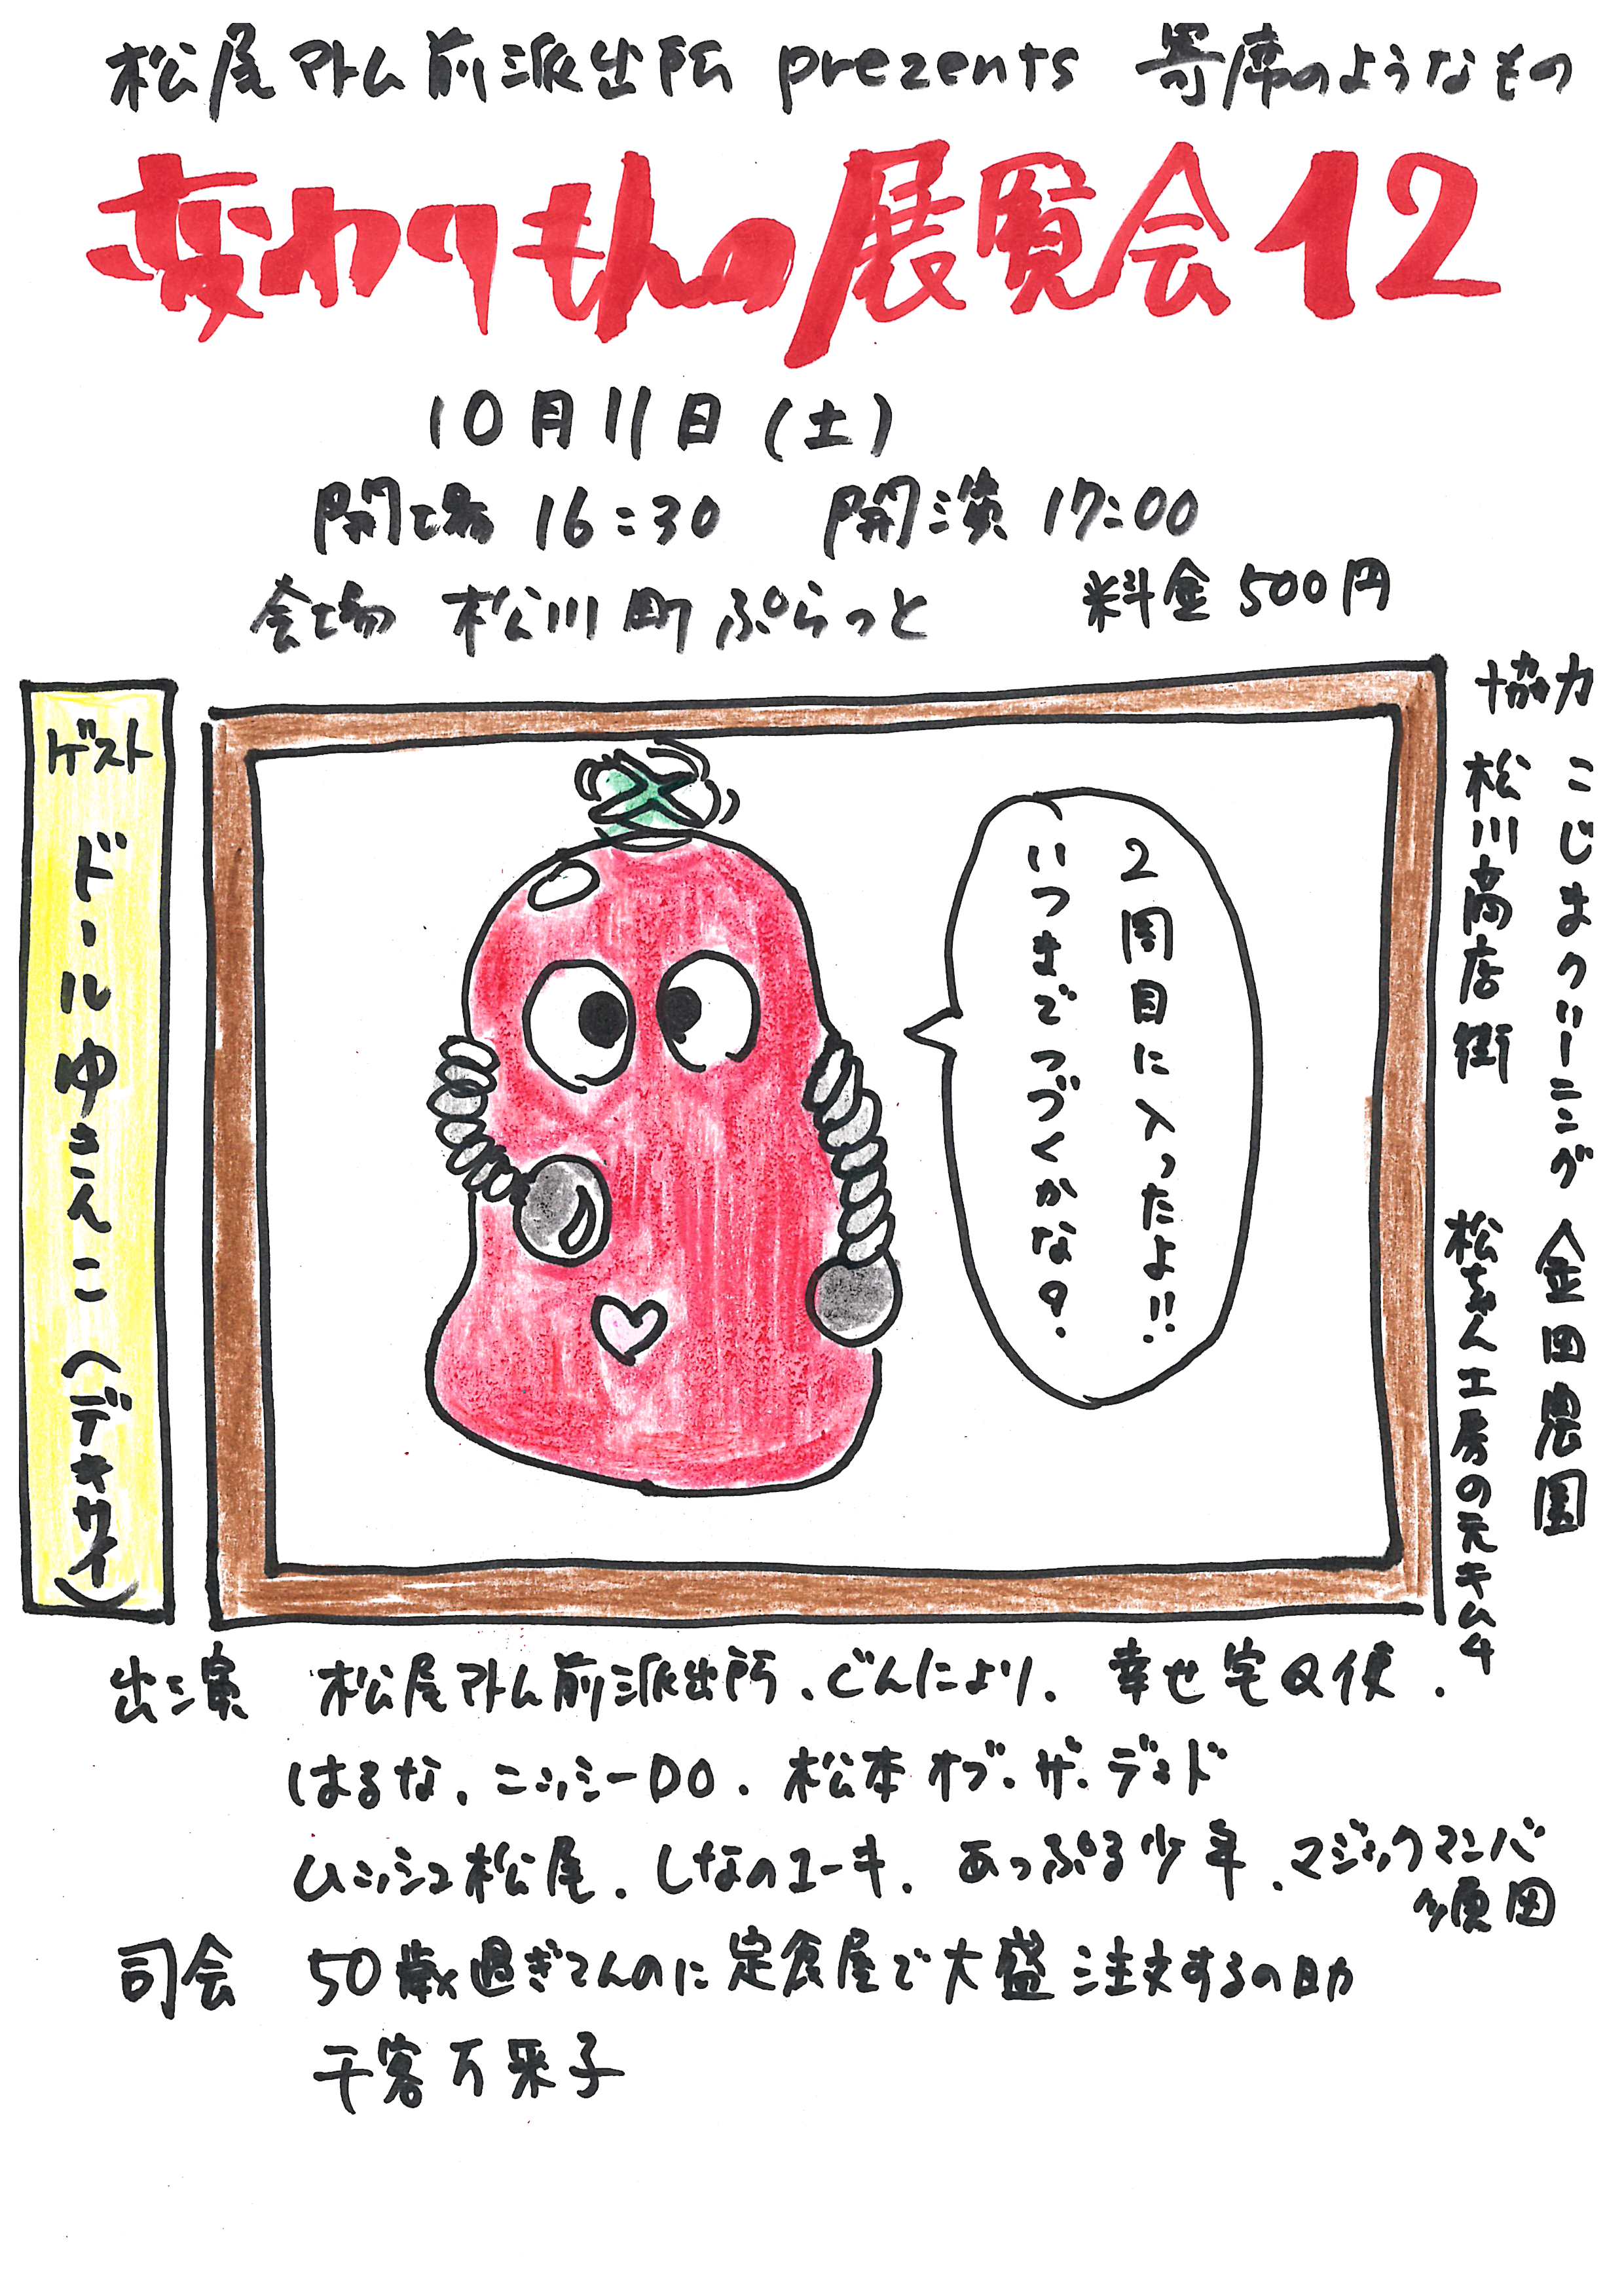 松尾アトム前派出所 prezents 寄席のようなもの
変わりもんの展覧会12
10月11日(土)
開場 16:30 開演 17:00
会場 松川町ぷらっと 料金500円
協力 こじまクリーニング 金田農園
松川商店街 松ちゃん工房の元キムチ
ゲスト ドールゆきんこ(デキサイ)
2周目に入ったよ!!
いつまでつづくかな?
出演 松尾アトム前派出所、どんによリ、幸せ宅Q便、
はるな、ニッシーDO、松本オブ・ザ・デッド
ムッシュ松尾、しなのユーキ、あっぷる少年、マジックマンバ
須田
司会 50歳過ぎてんのに定食屋で大盛注文するの助
千客万来子